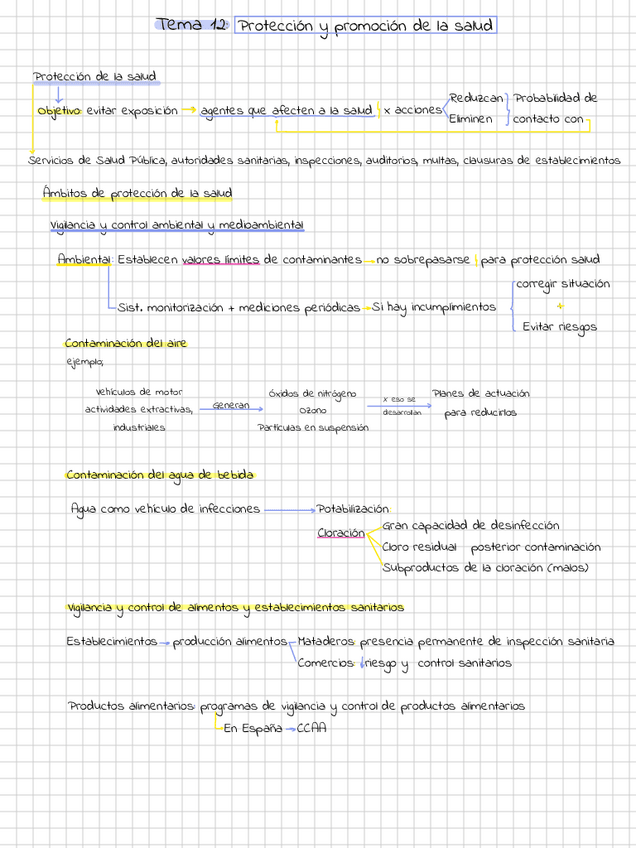 Tema 12: Protección y promoción de la salud
Protección de la salud
Objetivo: evitar exposición → agentes que afecten a la salud | x acciones
Reduzcan
Eliminen
Probabilidad de
contacto con
Servicios de Salud Pública, autoridades sanitarias, inspecciones, auditorios, multas, clausuras de establecimientos
Ámbitos de protección de la salud
Vigilancia y control ambiental y medioambiental
Ambiental: Establecen valores límites de contaminantes → no sobrepasarse | para protección salud
Sist. monitorización + mediciones periódicas → Si hay incumplimientos
corregir situación
+
Evitar riesgos
Contaminación del aire
ejemplo;
Vehículos de motor
actividades extractivas,
industriales
Generan
Óxidos de nitrógeno
Ozono
Partículas en suspensión
x eso se
desarrollan
Planes de actuación
para reducirlos
Contaminación del agua de bebida
Agua como vehículo de infecciones → Potabilización
Cloración
Gran capacidad de desinfección
Cloro residual posterior contaminación
Subproductos de la cloración (malos)
Vigilancia y control de alimentos y establecimientos sanitarios
Establecimientos → producción alimentos
Mataderos: presencia permanente de inspección sanitaria
Comercios: ↓riesgo y control sanitarios
Productos alimentarios: programas de vigilancia y control de productos alimentarios
En España → CCAA